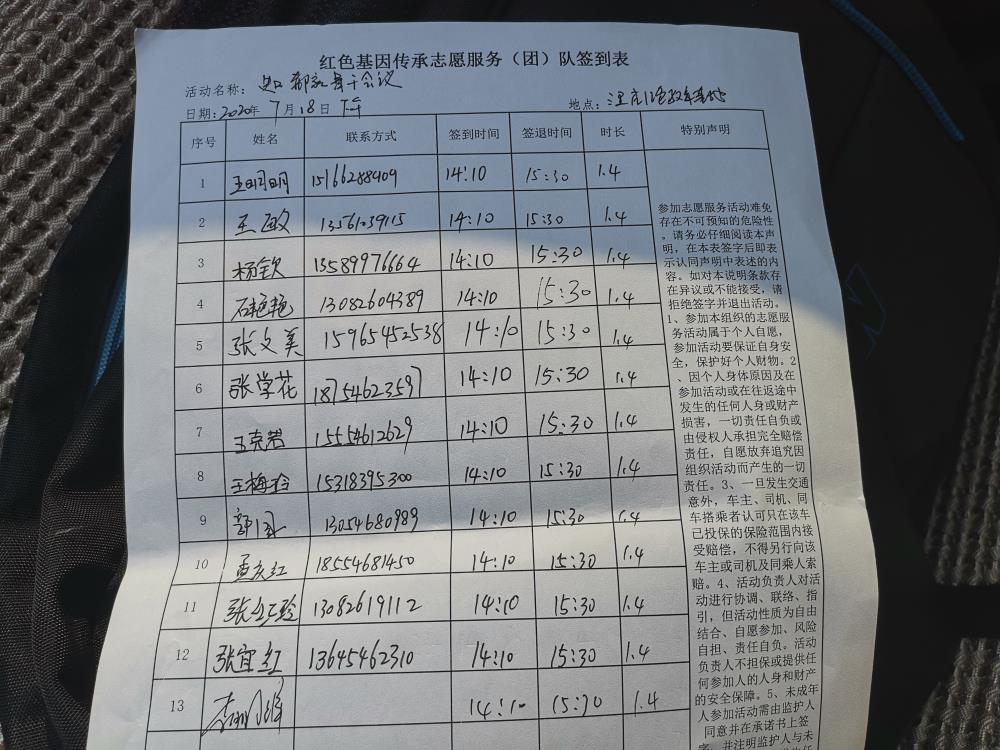 红色基因传承志愿服务（团）队签到表
活动名称：
日期：2020年7月18日
地点：
序号 姓名 联系方式 签到时间 签退时间 时长 特别声明
1 王明明 15166288409 14:10 15:30 1.4
2 王敏 13561039115 14:10 15:30 1.4
3 杨钦 13589976664 14:10 15:30 1.4
4 石艳艳 13082604389 14:10 15:30 1.4
5 张文美 15965452538 14:10 15:30 1.4
6 张学花 18754623597 14:10 15:30 1.4
7 王克岩 15554612629 14:10 15:30 1.4
8 王梅玲 15318395300 14:10 15:30 1.4
9 13054680989 14:10 15:30 1.4
10 孟庆红 18554681450 14:10 15:30 1.4
11 13082619112 14:10 15:30 1.4
12 张宜红 13645462310 14:10 15:30 1.4
13 14:10 15:30 1.4
参加志愿服务活动难免
存在不可预知的危险性
，请务必仔细阅读本声
明，在本表签字后即表
示认同声明中表述的内
容。如对本说明条款存
在异议或不能接受，请
拒绝签字并退出活动。
1、参加本组织的志愿服
务活动属于个人自愿，
参加活动要保证自身安
全，保护好个人财物。2
、因个人身体原因及在
参加活动或在往返途中
发生的任何人身或财产
损害，一切责任自负或
由侵权人承担完全赔偿
责任，自愿放弃追究因
组织活动而产生的一切
责任。3、一旦发生交通
意外，车主、司机、同
车搭乘者认可只在该车
已投保的保险范围内接
受赔偿，不得另行向该
车主或司机及同乘人索
赔。4、活动负责人对活
动进行协调、联络、指
引，但活动性质为自由
结合、自愿参加、风险
自担、责任自负。活动
负责人不担保或提供任
何参加人的人身和财产
的安全保障。5、未成年
人参加活动需由监护人
同意并在承诺书上签
字，并注明监护人与未